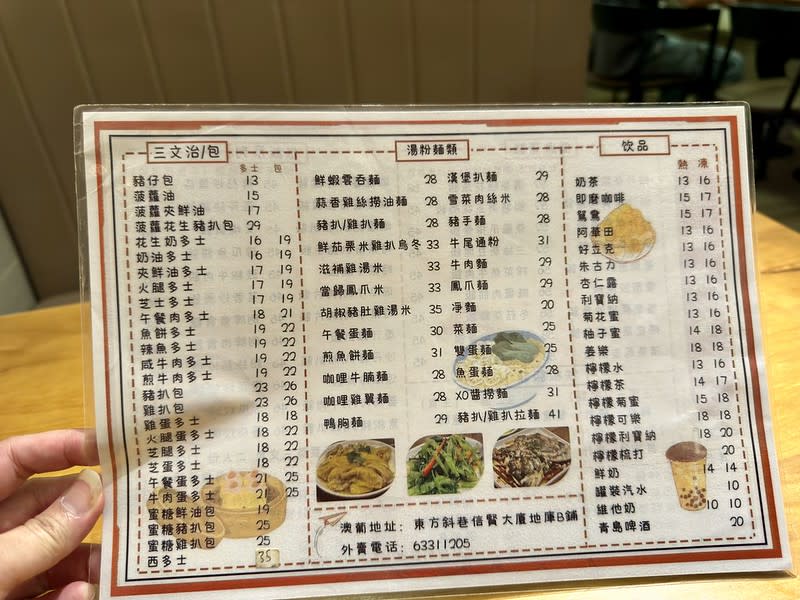 三文治/包
多士 包
豬仔包 13
菠蘿油 15
菠蘿夾鮮油 17
菠蘿花生豬扒包 29
花生奶多士 16 19
奶油多士 16 19
夾鮮油多士 17 19
火腿多士 17 19
芝士多士 17 19
午餐肉多士 18 21
魚餅多士 19 22
辣魚多士 19 22
咸牛肉多士 19 22
煎牛肉多士 19 22
豬扒包 23 26
雞扒包 23 26
雞蛋多士 18 18
火腿蛋多士 18 22
芝腿多士 18 22
芝蛋多士 18 22
午餐蛋多士 21 25
牛肉蛋多士 21 25
蜜糖鮮油包 19
蜜糖豬扒包 25
蜜糖雞扒包 25
西多士 35
湯粉麵類
鮮蝦雲吞麵 28
蒜香雞絲撈油麵 28
豬扒/雞扒麵 28
鮮茄栗米雞扒烏冬 33
滋補雞湯米 33
當歸鳳爪米 33
胡椒豬肚雞湯米 35
午餐蛋麵 30
煎魚餅麵 31
咖哩牛腩麵 28
咖哩雞翼麵 28
鴨胸麵 28
漢堡扒麵 29
雪菜肉絲米 28
豬手麵 29
牛尾通粉 31
牛肉麵 29
鳳爪麵 29
淨麵 20
菜麵 25
雙蛋麵 25
魚蛋麵 28
XO醬撈麵 31
豬扒/雞扒拉麵 41
澳葡地址：東方斜巷信賢大廈地庫B鋪
外賣電話：63311205
饮品
熱 凍
奶茶 13 16
即磨咖啡 15 17
鴛鴦 15 17
阿華田 13 16
好立克 13 16
朱古力 13 16
杏仁露 13 16
利寶納 13 16
菊花蜜 13 16
柚子蜜 14 18
姜樂 18 18
檸檬水 13 16
檸檬茶 14 17
檸檬菊蜜 15 18
檸檬可樂 18 18
檸檬利寶納 18 20
檸檬梳打 20
鮮奶 14 14
罐裝汽水 10
維他奶 10 10
青島啤酒 20